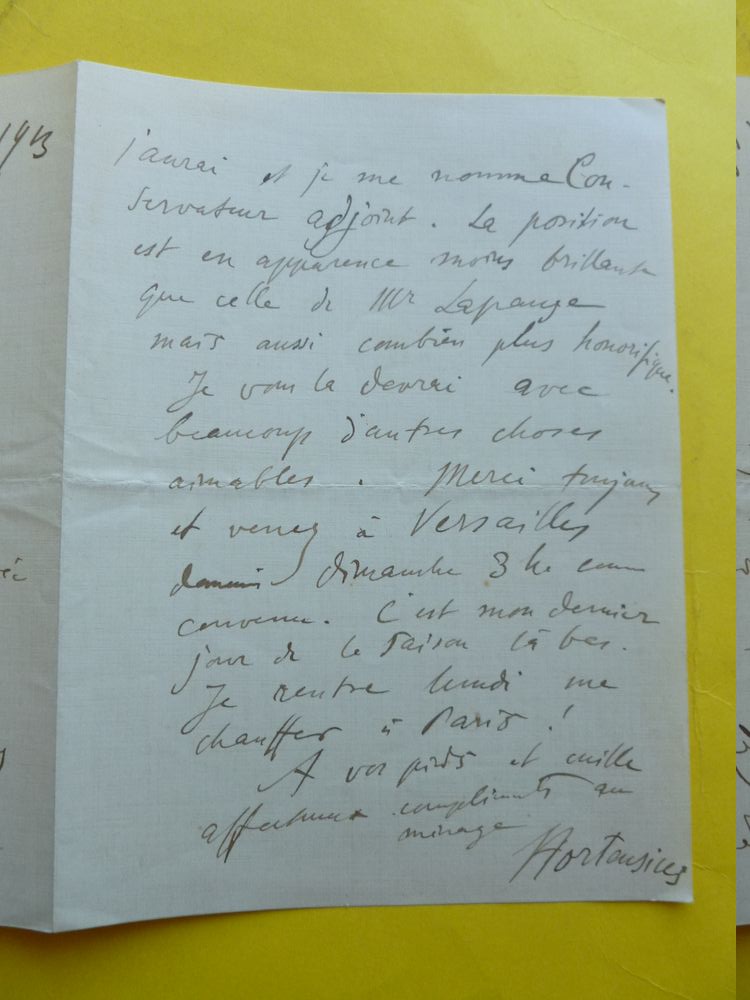 1913
j'aurai et je me nomme Con-
servateur adjoint. La position
est en apparence moins brillante
que celle de Mr Lapauze
mais aussi combien plus honorifique.
Je vous la devrai avec
beaucoup d'autres choses
aimables. Merci toujours
et venez à Versailles
demain dimanche 3 h comme
convenu. C'est mon dernier
jour de la saison là bas.
Je rentre lundi me
chauffer à Paris !
A vos pieds et mille
affectueux compliments au
ménage
Hortensius